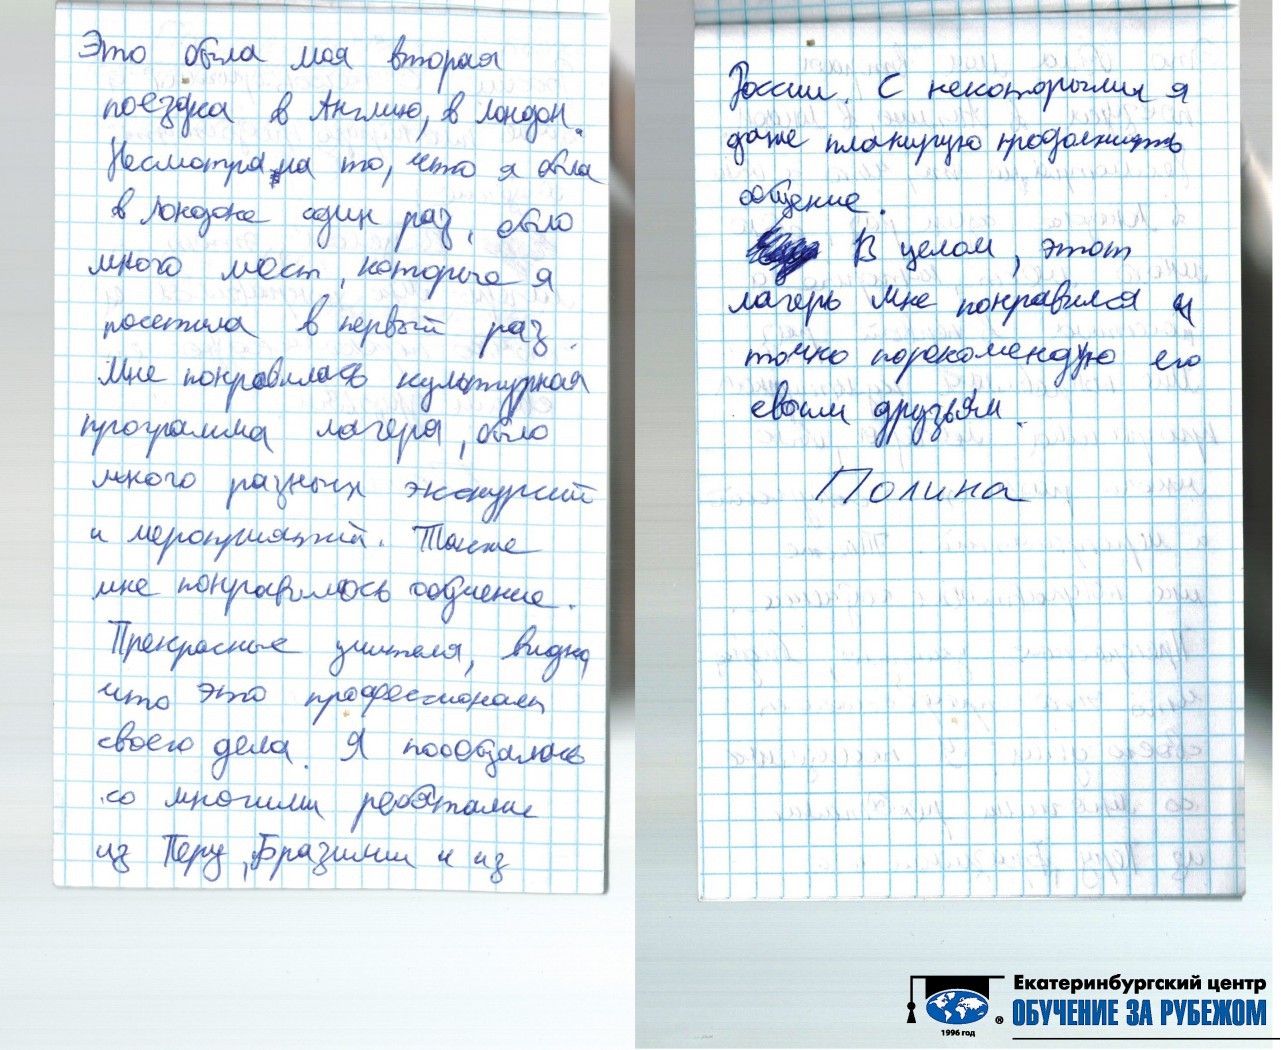 Это была моя вторая
поездка в Англию, в Лондон.
Несмотря на то, что я была
в Лондоне один раз, было
много мест, которые я
посетила в первый раз.
Мне понравилась культурная
программа лагеря, было
много разных экскурсий
и мероприятий. Также
мне понравилось обучение.
Прекрасные учителя, видно,
что это профессионалы
своего дела. Я пообщалась
со многими ребятами
из Перу, Бразилии и из
России. С некоторыми я
даже планирую продолжить
общение.
В целом, этот
лагерь мне понравился и
точно порекомендую его
своим друзьям.
Полина
Екатеринбургский центр
ОБУЧЕНИЕ ЗА РУБЕЖОМ
®
1996 год